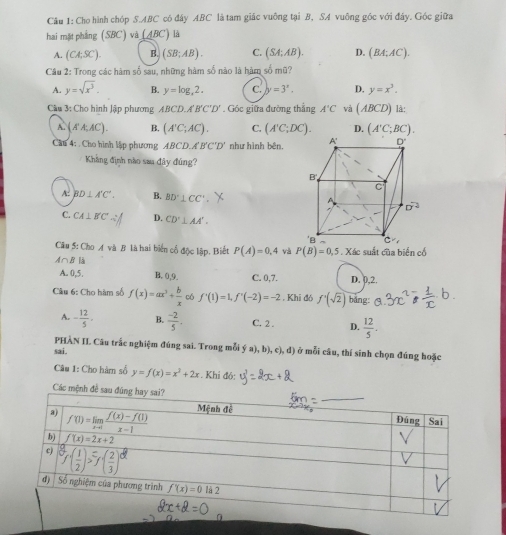 Câu 1: Cho hình chóp S.ABC có đáy ABC là tam giác vuông tại B, SA vuông góc với đáy. Góc giữa
hai mặt phẳng (SBC) và (ABC) là
A. (CA;SC). B. (SB;AB). C. (SA;AB). D. (BA;AC).
Câu 2: Trong các hàm số sau, những hàm số nào là hàm số mũ?
A. y=√x³. B. y=log₃2. C. y=3ˣ. D. y=x³.
Câu 3: Cho hình lập phương ABCD.A'B'C'D'. Góc giữa đường thẳng A'C và (ABCD) là:
A. (A'A;AC). B. (A'C;AC). C. (A'C;DC). D. (A'C;BC).
Câu 4: . Cho hình lập phương ABCD.A'B'C'D' như hình bên.
Khẳng định nào sau đây đúng?
A. BD ⊥ A'C'. B. BD' ⊥ CC'. X
C. CA ⊥ B'C' D. CD' ⊥ AA'.
A' D'
B' C'
A D
B C
Câu 5: Cho A và B là hai biến cố độc lập. Biết P(A)=0,4 và P(B)=0,5. Xác suất của biến cố
A∩B là
A. 0,5. B. 0,9. C. 0,7. D. 0,2.
Câu 6: Cho hàm số f(x)=ax³+b/x có f'(1)=1, f'(−2)=−2. Khi đó f'(√2) bằng:
A. −12/5. B. −2/5. C. 2. D. 12/5.
PHẦN II. Câu trắc nghiệm đúng sai. Trong mỗi ý a), b), c), d) ở mỗi câu, thí sinh chọn đúng hoặc
sai.
Câu 1: Cho hàm số y=f(x)=x²+2x. Khi đó: y'=2x+2
Các mệnh đề sau đúng hay sai?
Mệnh đề Đúng Sai
a) f'(1)=lim x→1 f(x)−f(1)/x−1 V
b) f'(x)=2x+2 V
c) f'(1/2)>f'(2/3) V
d) Số nghiệm của phương trình f'(x)=0 là 2 V
2x+2=0